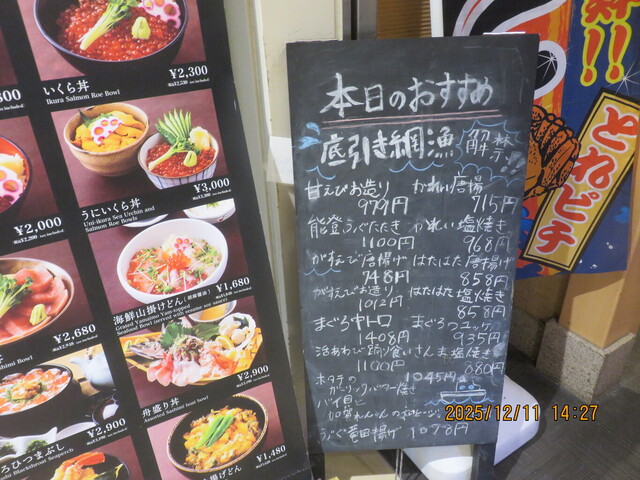 いくら丼
Ikura Salmon Roe Bowl
¥2,300
¥2,000
うにいくら丼
Uni-ikura Sea Urchin and
Salmon Roe Bowls
¥3,000
海鮮山掛けどん
Grated Yamaimo Yam-topped
Seafood Bowl
¥1,680
¥2,680
舟盛り丼
Assorted Sashimi boat bowl
¥2,900
¥2,900
ろひつまぶし
¥1,480
本日のおすすめ
底引き網漁 解禁!!
甘えびお造り 979円
かれい唐揚 715円
能登ふぐたたき 1100円
かれい塩焼き 968円
がすえび唐揚げ 748円
はたはた唐揚げ 858円
がすえびお造り 1012円
はたはた塩焼き 858円
まぐろ中トロ 1408円
まぐろユッケ 935円
活あわび踊り食い 1100円
さんま塩焼き 880円
ホタテの
ガーリックバター焼き 1045円
バイ貝と
加賀れんこんの
ふぐ竜田揚げ 1078円
とれピチ
2025/12/11 14:27